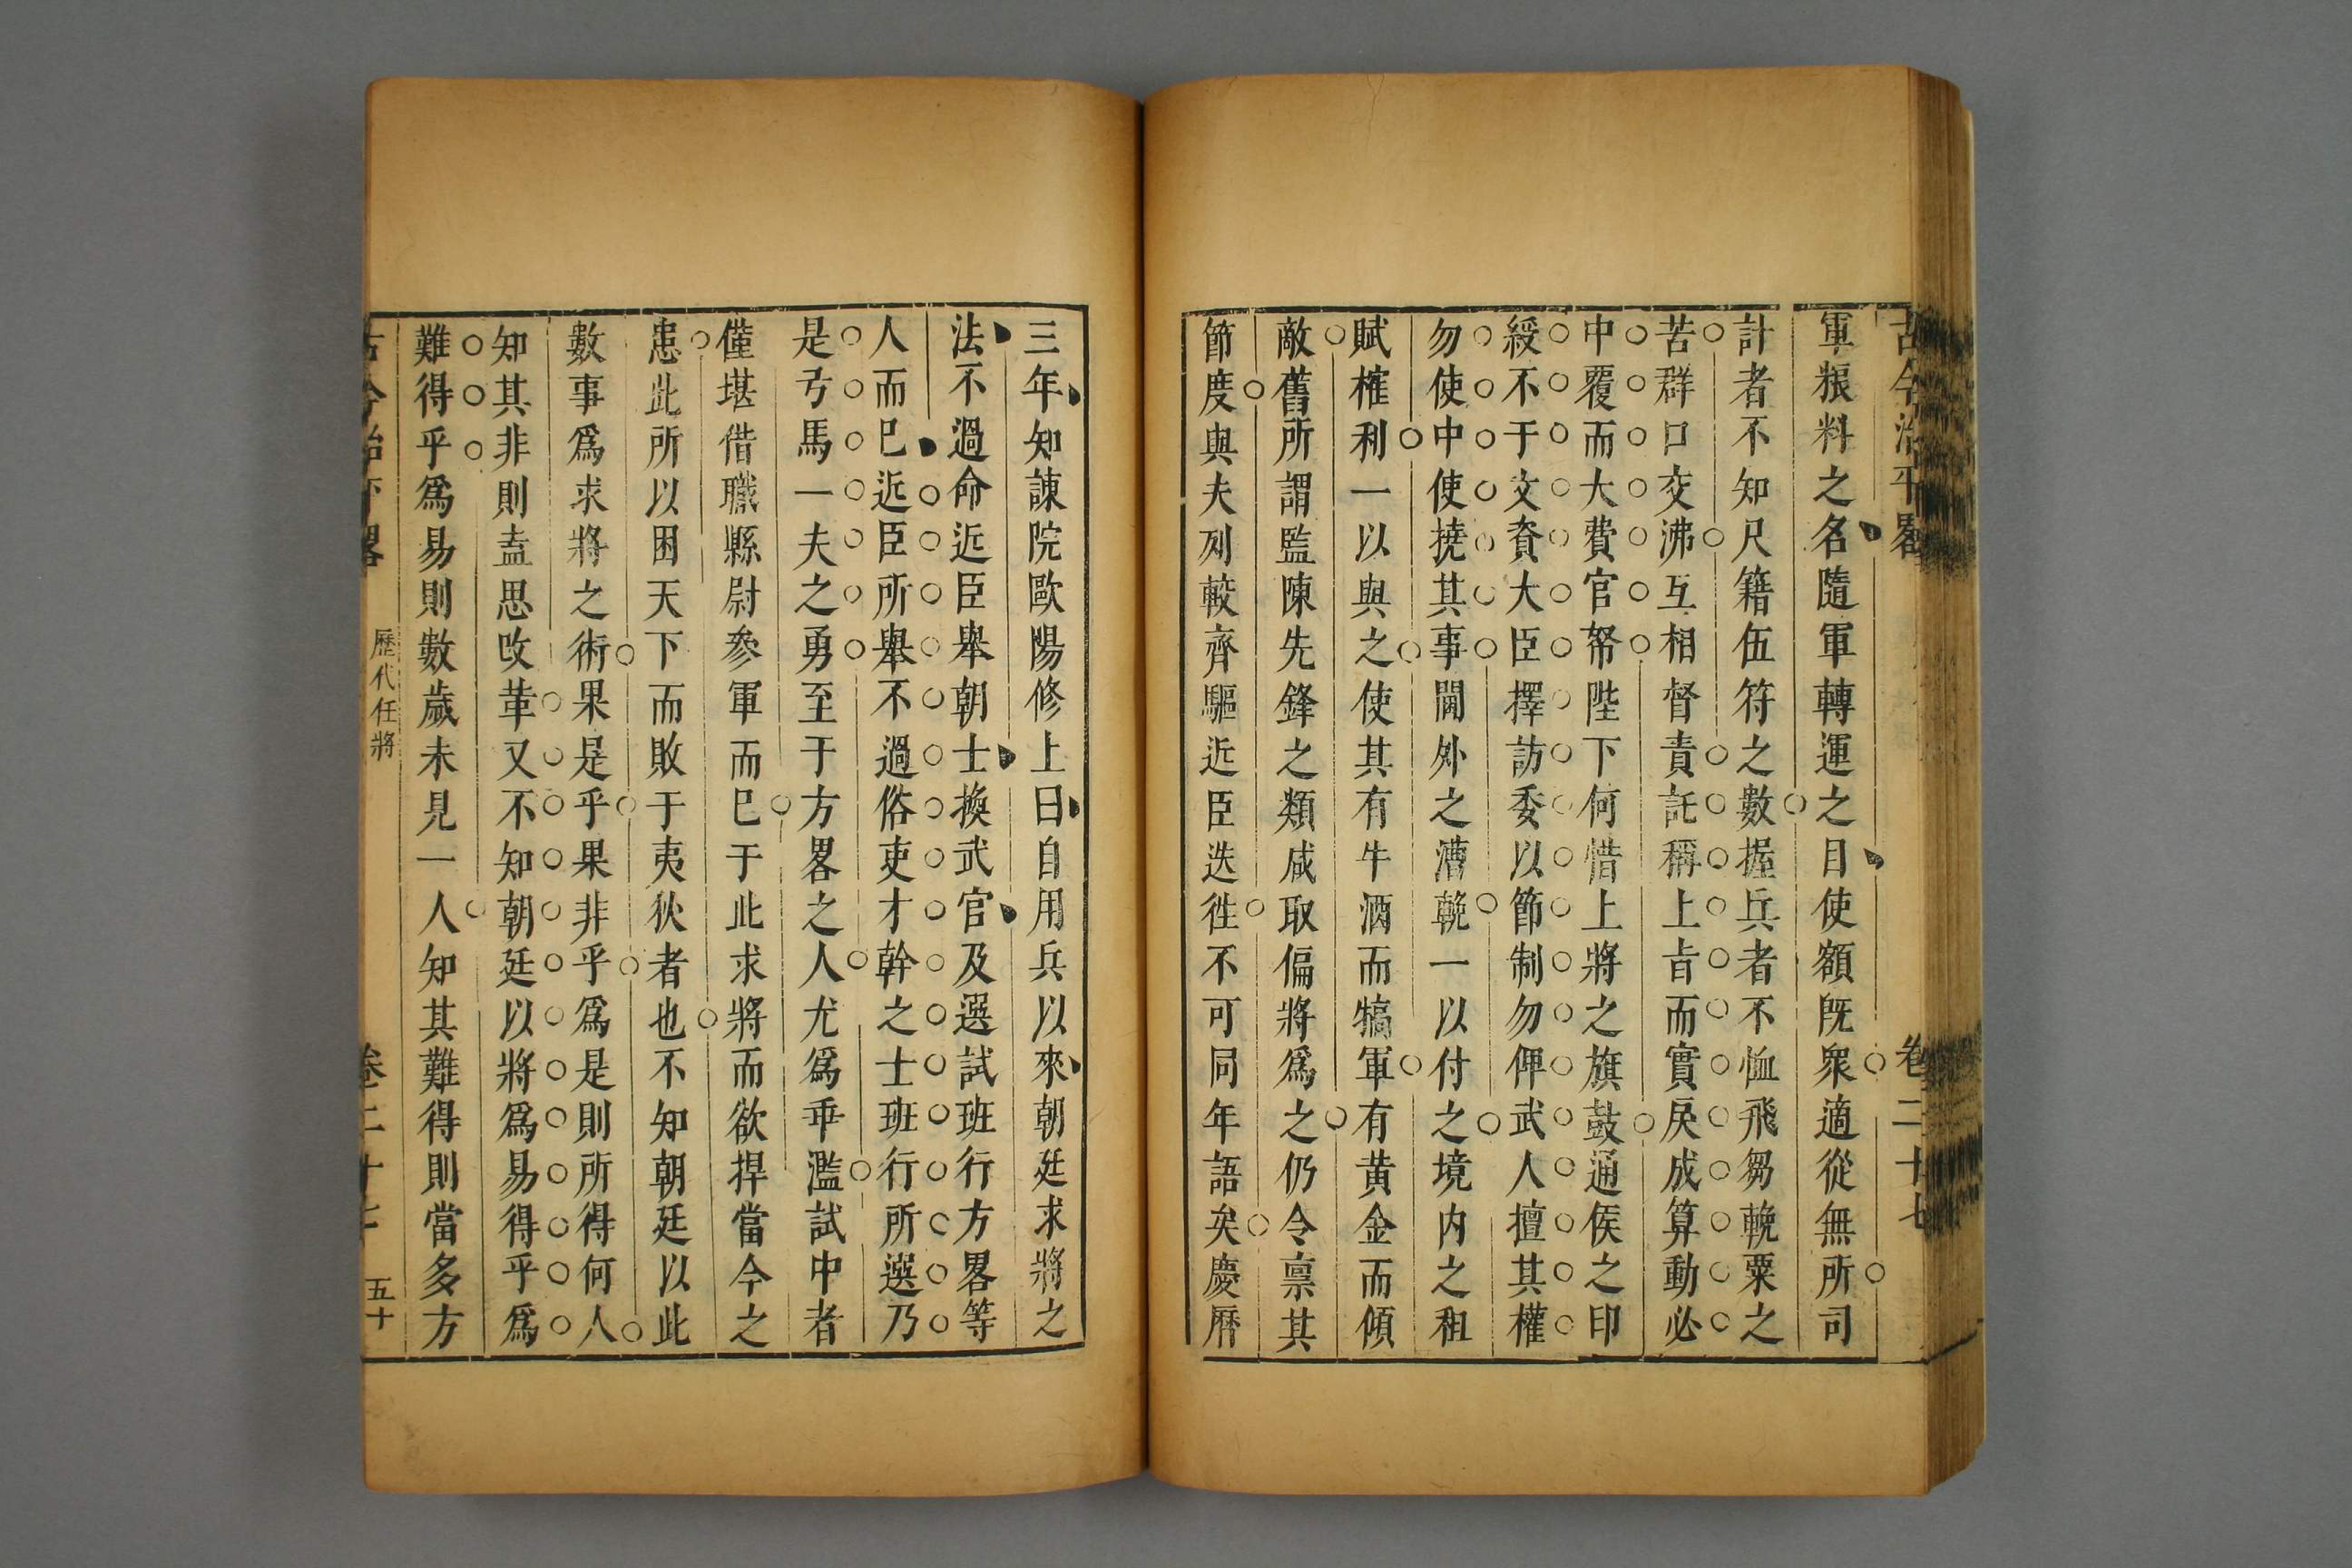 古今治平畧
卷二十七
軍粮料之名隨軍轉運之目使額旣衆適從無所司
計者不知尺籍伍符之數握兵者不恤飛芻輓粟之
苦群口交沸互相督責託稱上旨而實戾成算動必
中覆而大費官帑陛下何惜上將之旗鼓通侯之印
綬不于文資大臣擇訪委以節制勿俾武人擅其權
勿使中使撓其事閫外之漕輓一以付之境内之租
賦榷利一以與之使其有牛酒而犒軍有黄金而傾
敵舊所謂監陳先鋒之類咸取偏將爲之仍令禀其
節度與夫列較齊驅近臣迭徃不可同年語矣慶曆
三年知諫院歐陽修上曰自用兵以來朝廷求將之
法不過命近臣舉朝士換武官及選試班行方畧等
人而巳近臣所舉不過俗吏才幹之士班行所選乃
是弓馬一夫之勇至于方畧之人尤爲乖濫試中者
僅堪借職縣尉參軍而巳于此求將而欲捍當今之
患此所以困天下而敗于夷狄者也不知朝廷以此
數事爲求將之術果是乎果非乎爲是則所得何人
知其非則盍思改革又不知朝廷以將爲易得乎爲
難得乎爲易則數歲未見一人知其難得則當多方
古今治平畧
歷代任將
卷二十七
五十